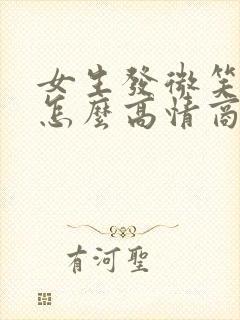 女生發微笑
怎麼高情商
有河聖